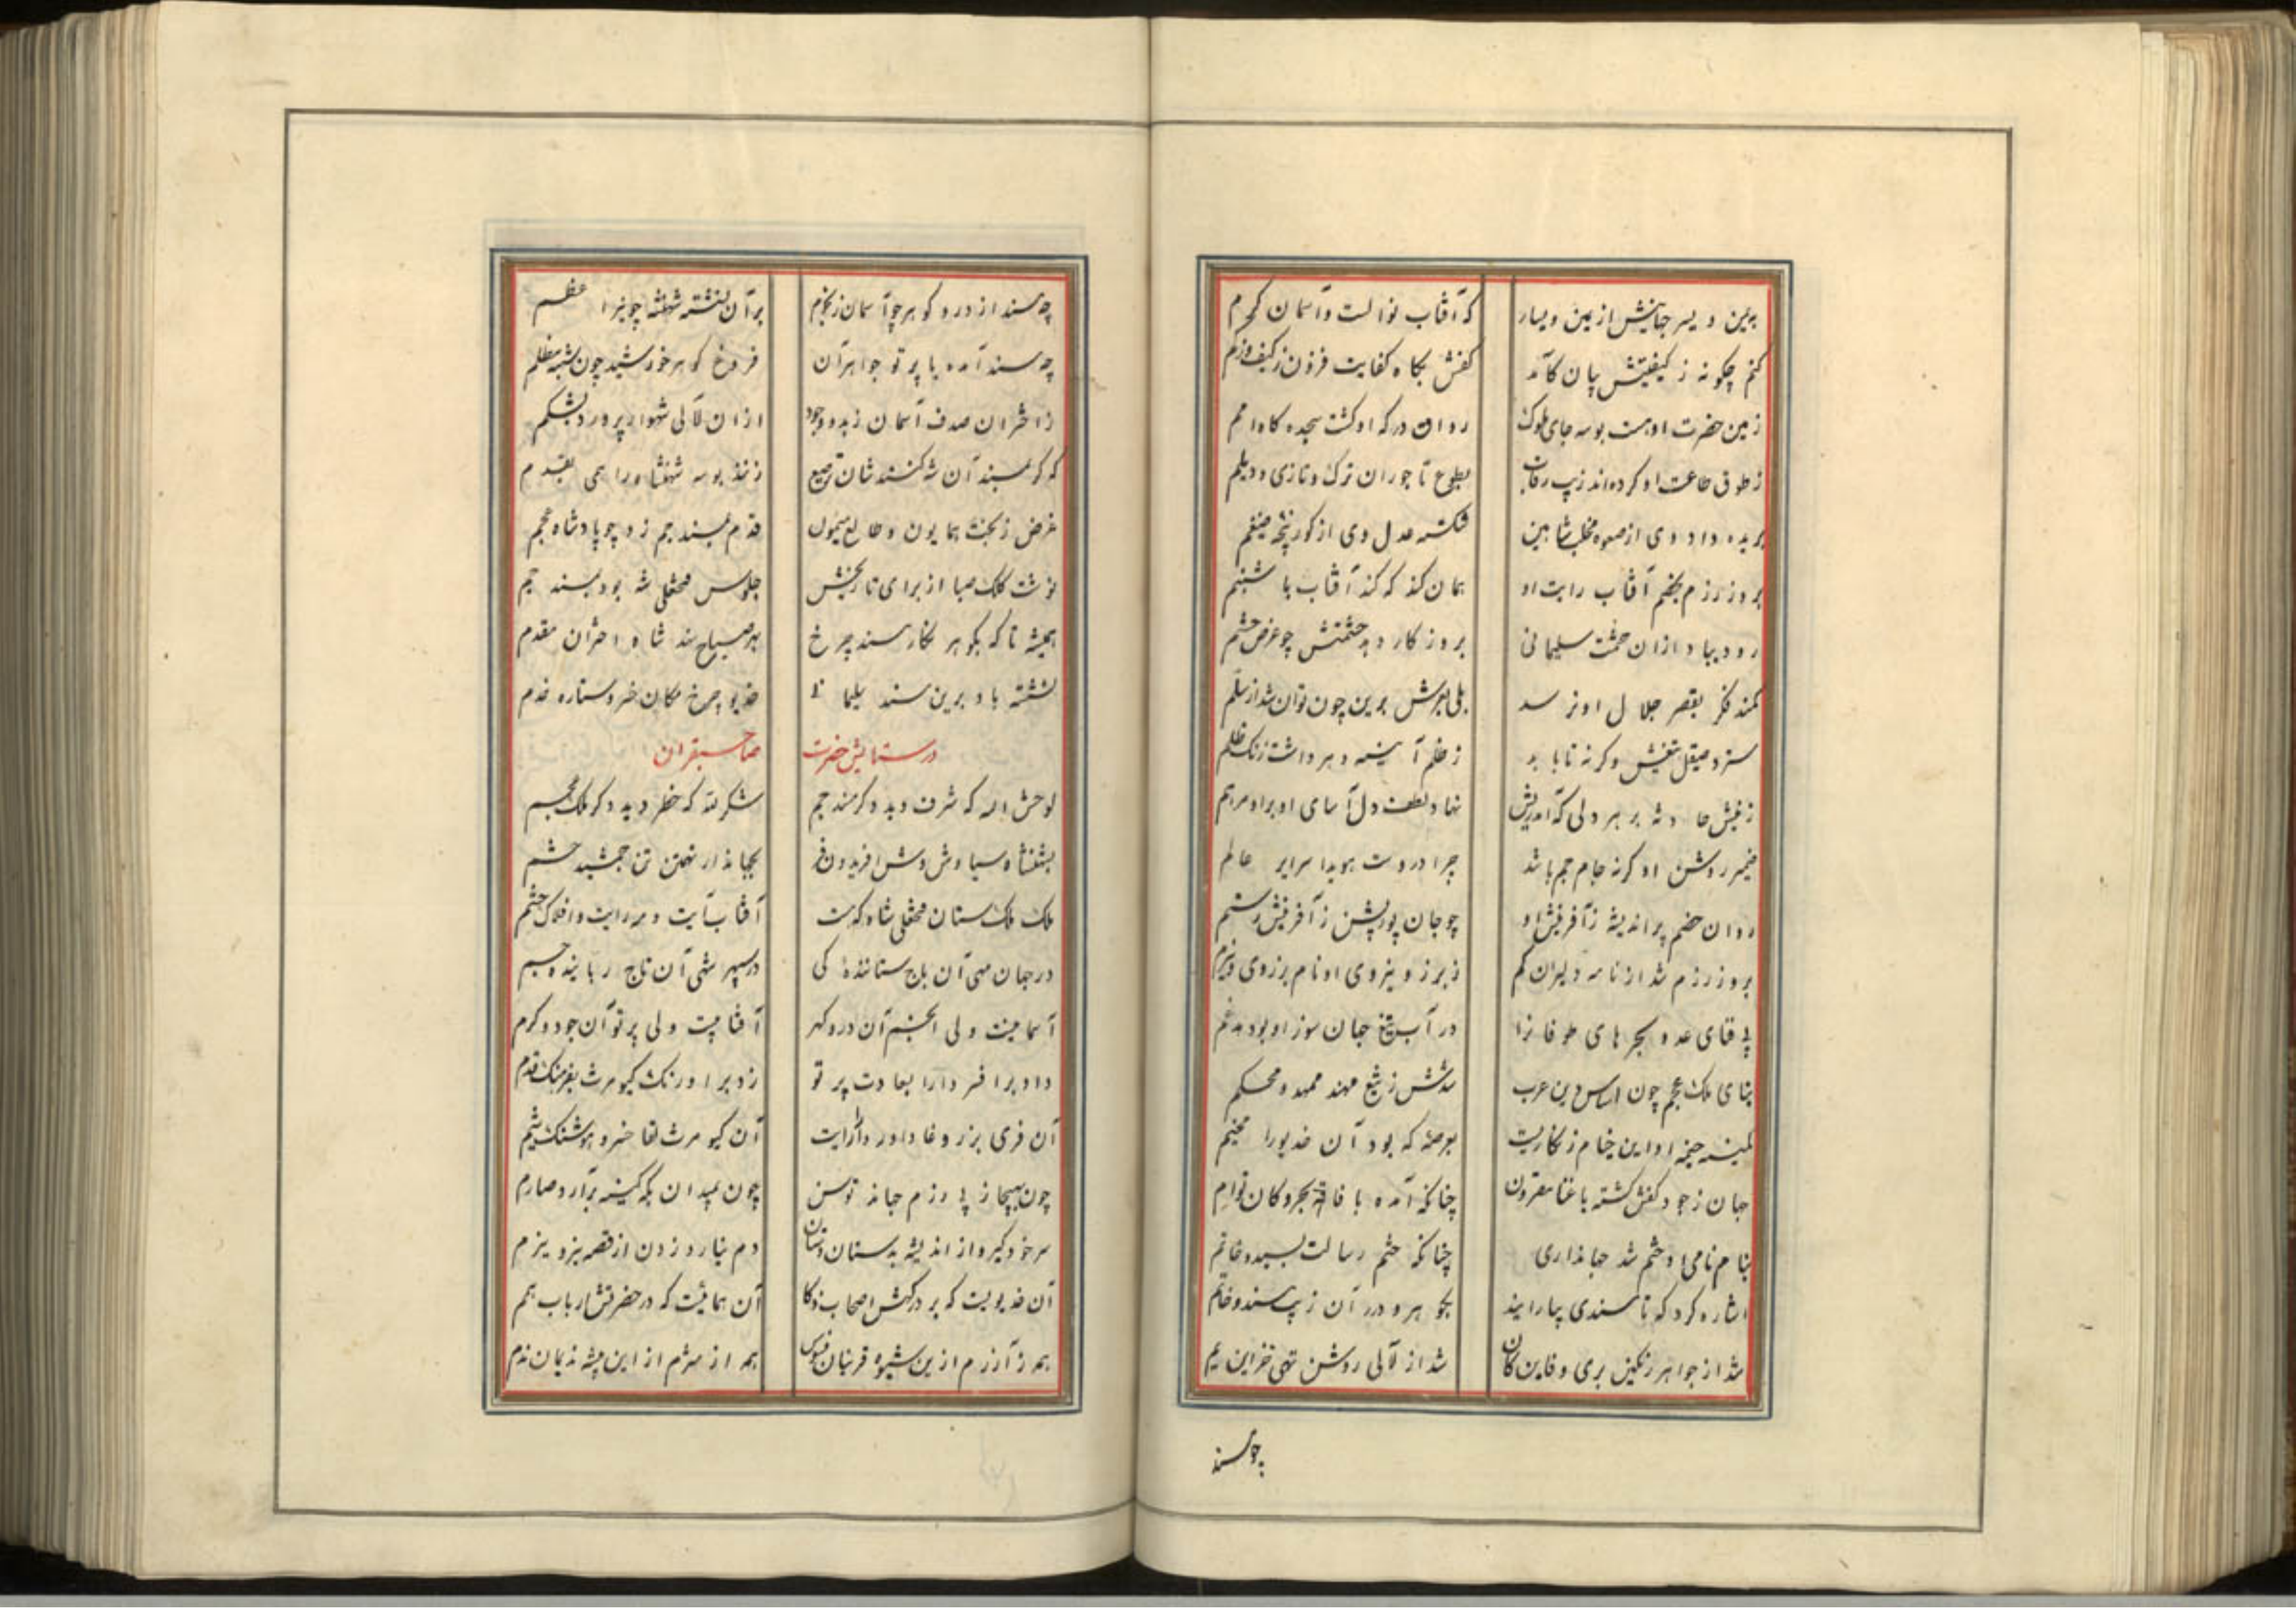 بیمین و یسر جهانیش از یمین و یسار که آفتاب نوالست و آسمان کرم
کنم چگونه ز کیفیتش بیان کآمد کفش بگاه کفایت فزون ز کیف و ز کم
زمین حضرت او هست بوسه جای ملوک روان درگه او گشت سجده گاه امم
ز طوق طاعت او کرده‌اند زیب رقاب بطوع تاجوران ترک و تازی و دیلم
بریده داد وی از صعوه مخلب شاهین شکسته عدل وی از گور پنجه ضیغم
بروز رزم بخصم آفتاب رایت او همان کند که کند آفتاب با شبنم
رود بباد از آن حشمت سلیمانی بروزگار دهد حشمتش چو عرض حشم
کمند فکر بقصر جلال او نرسد بلی بعرش برین چون توان شد از سلم
سترد صیقل تیغش وگرنه تا بابد ز ظلم آینه دهر داشت زنگ ظلم
ز نیش حادثه بر هر دلی که آمد ریش نهاد لطف دل آسای او بر او مرهم
ضمیر روشن او گرنه جام جم باشد چرا دروست هویدا سرایر عالم
روان خصم پراندیشه ز آفرینش او چو جان پور پشن ز آفرینش رستم
بروز رزم شد از نامه دلیران گم ز برز و نیروی او نام برزوی و نیرم
پی فنای عدو بحرهای طوفان‌زا در آب تیغ جان سوز او بود مدغم
بنای ملک عجم چون اساس دین عرب شدش ز تیغ مهند ممهد و محکم
کمینه خیمه او این خیام زنگاریست بعرصه که بود آن خدیو را مخیم
جهان ز جود کفش گشته با غنا مقرون چنانکه آمده با فاقه بحر و کان توام
بنام نامی او ختم شد جهانداری چنانکه ختم رسالت بسید خاتم
اشاره کرد که تا مسندی بیارایند بگوهر و درر آن زیب مسند و خاتم
شد از جواهر رنگین بری دفاین کان شد از لآلی روشن تهی خزاین یم
چو مسند
چو مسند از در و گوهر چو آسمان ز نجوم بر آن نشسته شهنشه چو نیر اعظم
چو مسند آمده با پرتو جواهر آن فروغ گوهر خورشید چون شبه مظلم
ز اختران صدف آسمان ز بدو وجود از آن لآلی شهوار پرورد بشکم
که گر بمسند آن شه کنند شان ترصیع زنند بوسه شهنشاه را همی بقدم
غرض ز بخت همایون و طالع میمون قدم بمسند جم زد چو پادشاه عجم
نوشت کلک صبا از برای تاریخش جلوس فتحعلی شه بود بمسند جم
همیشه تا که بگوهر نگار مسند چرخ بهر صباح نهد شاه اختران مقدم
نشسته باد برین مسند سلیمانی خدیو چرخ مکان خسرو ستاره خدم
در ستایش حضرت صاحبقران
لوحش الله که شرف دید دگر مسند جم شکر لله که خطر دید دگر ملک عجم
بشهنشاه سیاوش وش افریدون فر بجهاندار تهمتن تن جمشید حشم
ملک ملک ستان فتحعلی شاه که هست آفتاب آیت و مه رایت و افلاک حشم
در جهان مهی آن باج ستاننده کی در سپهر شهی آن تاج رباینده جم
آسمانیست ولی انجم آن در و گهر آفتابیست ولی پرتو آن جود و کرم
داد بر افسر دارا بسعادت پرتو زد بر اورنگ کیومرث بفرهنگ قدم
آن فری برز وغا داور دارا رایت آن کیومرث لقا خسرو هوشنگ شیم
چون بهیجا ز پی رزم جهاند توسن چون بمیدان بگه کینه برآرد صارم
سر خود گیرد از اندیشه بدستان دستان دم نیارد زدن از قصه برز و نیرم
آن خدیویست که بر درگهش اصحاب ذکا آن هماییست که در حضرتش ارباب همم
همه ز آزرم ازین شیوه قرینان فسوس همه از شرم از این پیشه ندیمان ندم